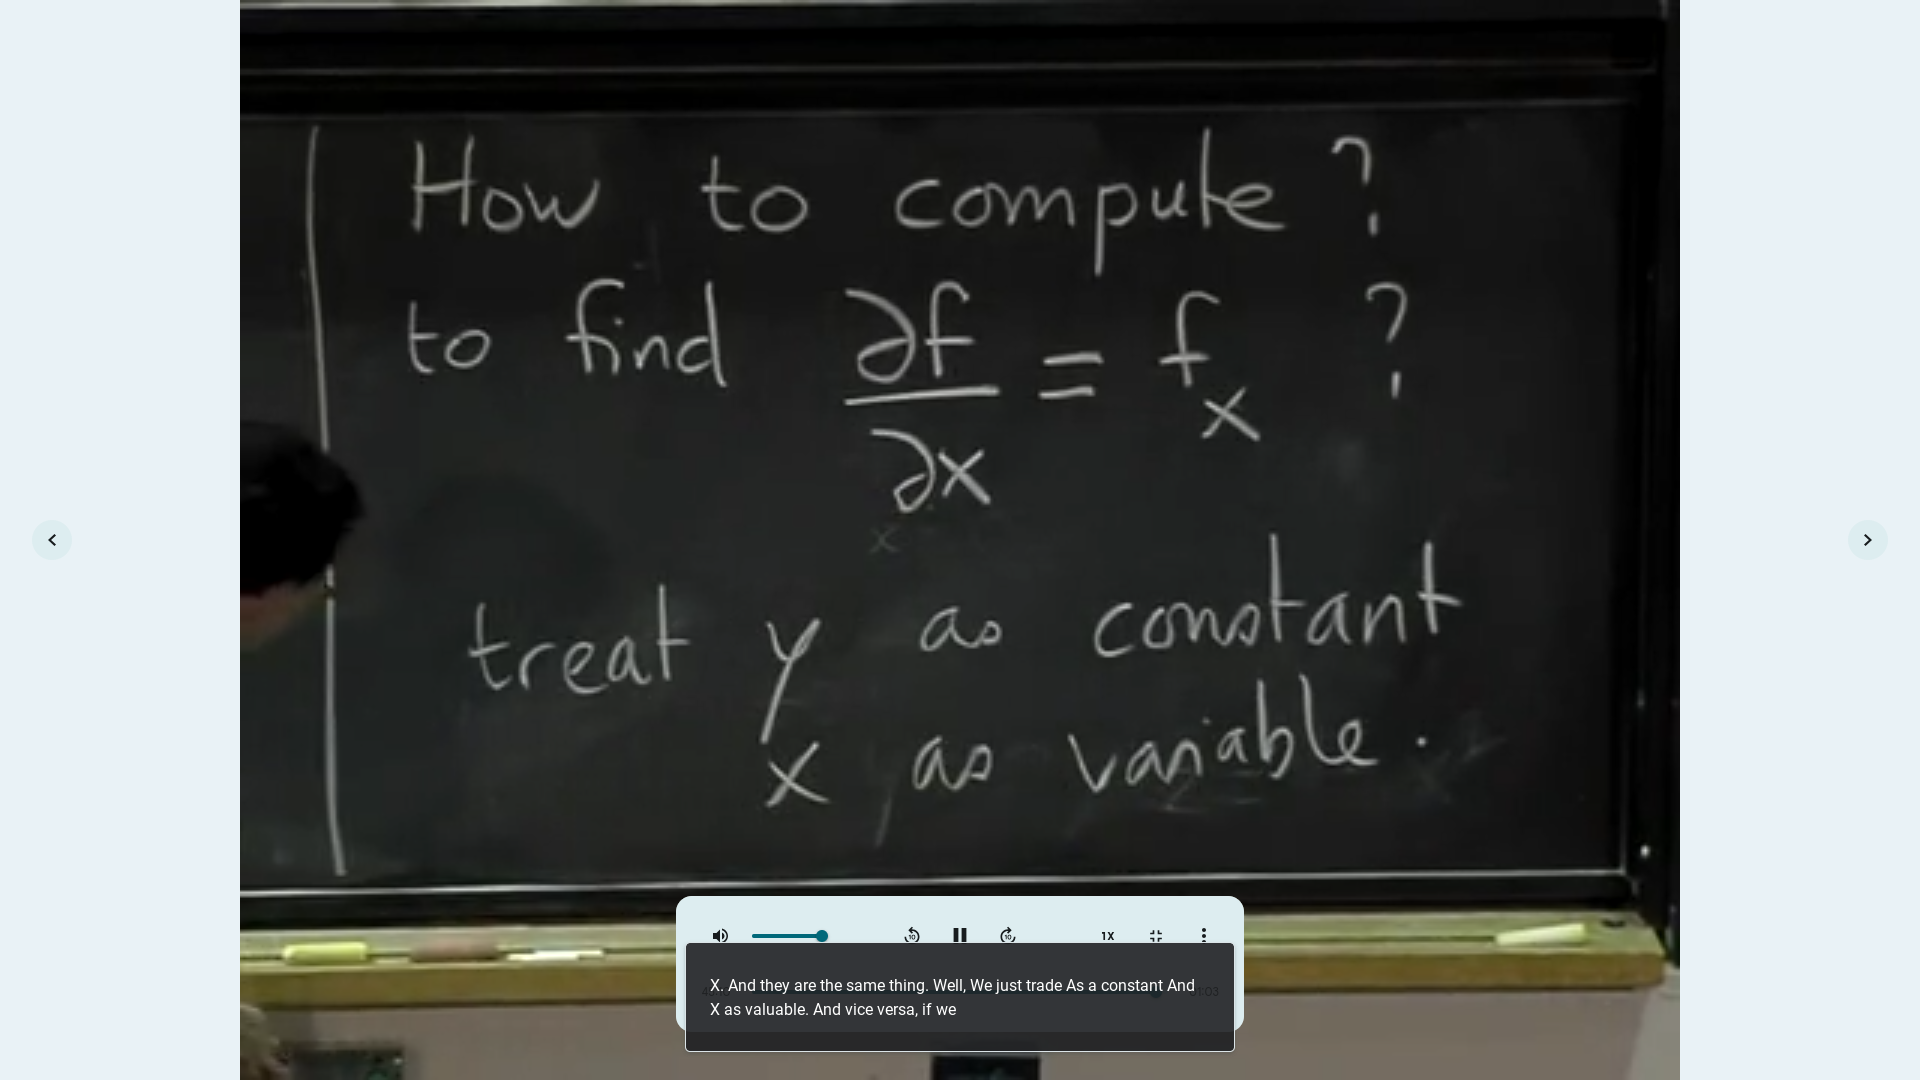 How to compute ?
to find ∂f/∂x = f_x ?
treat y as constant
x as variable.
1X
X. And they are the same thing. Well, We just trade As a constant And
X as valuable. And vice versa, if we